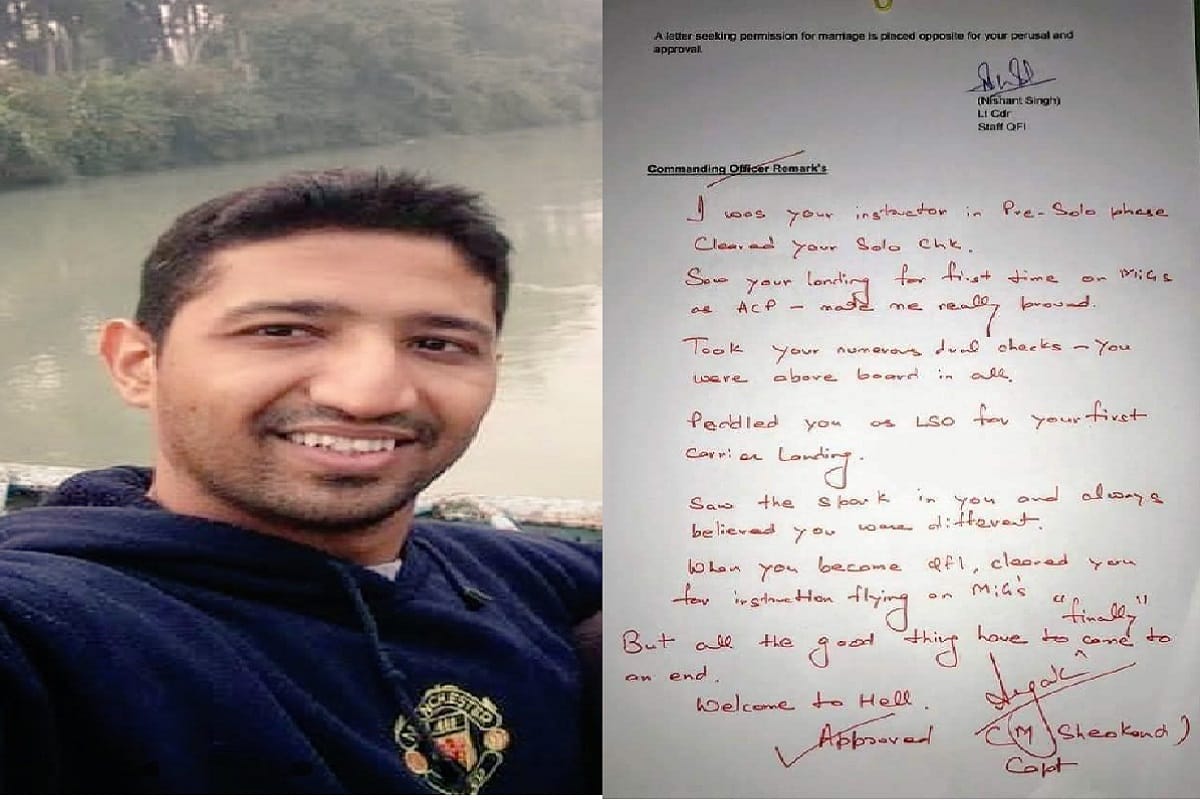 MANCHESTER
A letter seeking permission for marriage is placed opposite for your perusal and
approval.
(Nishant Singh)
Lt Cdr
Staff QFI
Commanding Officer Remark's
I was your instructor in Pre-Solo phase
Cleared your Solo Chk.
Saw your landing for first time on MiGs
as ACP - made me really proud.
Took your numerous dual checks - You
were above board in all.
Peddled you as LSO for your first
Carrier Landing.
Saw the spark in you and always
believed you were different.
When you become QFI, cleared you
for instruction flying on MiG's
"finally"
But all the good thing have to come to
an end.
Welcome to Hell.
Approved
(M Sheokand)
Capt